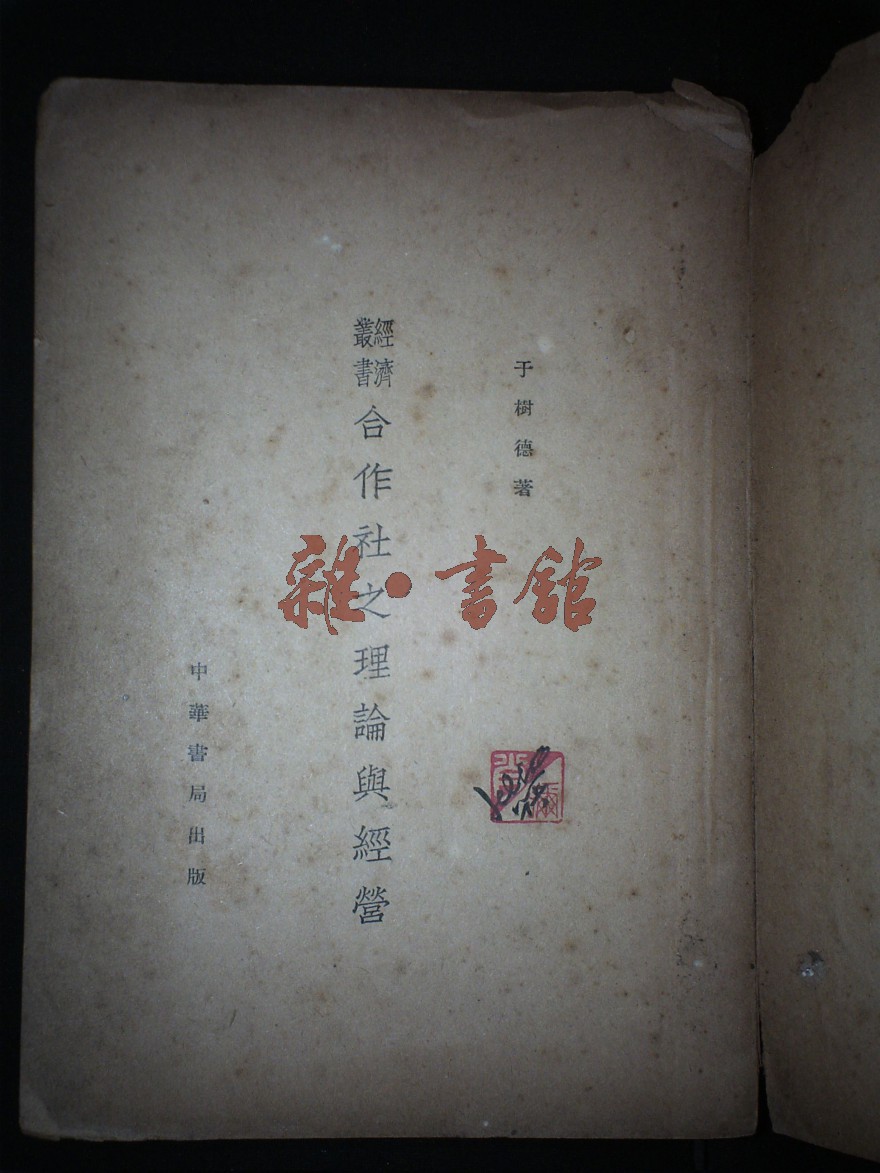 于樹德著
經濟叢書
合作社之理論與經營
中華書局出版
雜·書舘